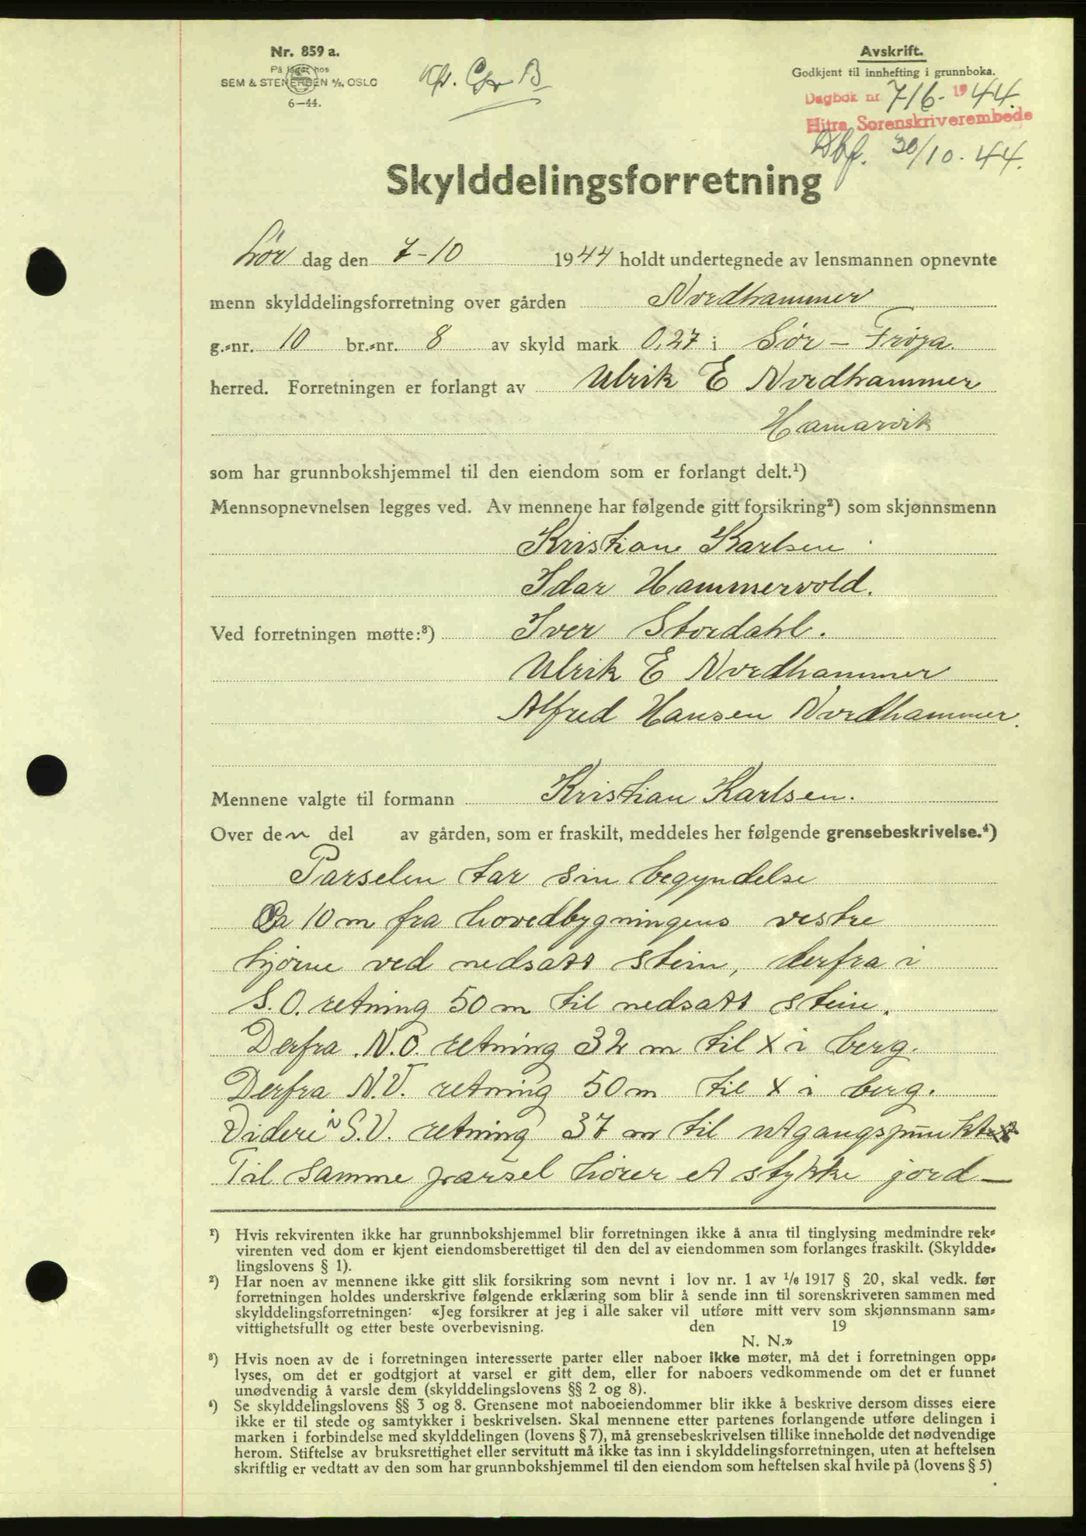 Nr. 859 a.
På lager hos
SEM & STENERSEN A/S, OSLO
6–44.
Avskrift.
Godkjent til innhefting i grunnboka.
Dagbok nr. 716 - 1944.
Hitra Sorenskriverembede
30/10-44.
Skylddelingsforretning
Lør dag den 7-10 1944 holdt undertegnede av lensmannen opnevnte
menn skylddelingsforretning over gården Nordhammer
g.-nr. 10 br.-nr. 8 av skyld mark 0,27 i Sør - Frøya
herred. Forretningen er forlangt av Ulrik E Nordhammer
Hamarvik
som har grunnbokshjemmel til den eiendom som er forlangt delt.¹)
Mennsopnevnelsen legges ved. Av mennene har følgende gitt forsikring²) som skjønnsmenn
Kristian Karlsen
Idar Hammervold.
Ved forretningen møtte:³) Iver Stordahl.
Ulrik E Nordhammer
Alfred Hansen Nordhammer.
Mennene valgte til formann Kristian Karlsen.
Over den del av gården, som er fraskilt, meddeles her følgende grensebeskrivelse.⁴)
Parselen tar sin begyndelse
Ca 10 m fra hovedbygningens vestre
hjørne ved nedsatt stein, derfra i
S.O. retning 50 m til nedsatt stein.
Derfra N.O. retning 32 m til X i berg.
Derfra N.V. retning 50 m til X i berg.
Videre i S.V. retning 37 m til utgangspunktet
Til samme parsel hører et stykke jord-
¹) Hvis rekvirenten ikke har grunnbokshjemmel blir forretningen ikke å anta til tinglysing medmindre rek-
virenten ved dom er kjent eiendomsberettiget til den del av eiendommen som forlanges fraskilt. (Skyldde-
lingslovens § 1).
²) Har noen av mennene ikke gitt slik forsikring som nevnt i lov nr. 1 av 1/6 1917 § 20, skal vedk. før
forretningen holdes underskrive følgende erklæring som blir å sende inn til sorenskriveren sammen med
skylddelingsforretningen: «Jeg forsikrer at jeg i alle saker vil utføre mitt verv som skjønnsmann sam-
vittighetsfullt og etter beste overbevisning. den 19
N. N.»
³) Hvis noen av de i forretningen interesserte parter eller naboer ikke møter, må det i forretningen opp-
lyses, om det er godtgjort at varsel er gitt dem, eller for naboers vedkommende om det er funnet
unødvendig å varsle dem (skylddelingslovens §§ 2 og 8).
⁴) Se skylddelingslovens §§ 3 og 8. Grensene mot naboeiendommer blir ikke å beskrive dersom disses eiere
ikke er til stede og samtykker i beskrivelsen. Skal mennene etter partenes forlangende utføre delingen i
marken i forbindelse med skylddelingen (lovens § 7), må grensebeskrivelsen tillike inneholde det nødvendige
herom. Stiftelse av bruksrettighet eller servitutt må ikke tas inn i skylddelingsforretningen, uten at heftelsen
skriftlig er vedtatt av den som har grunnbokshjemmel til den eiendom som heftelsen skal hvile på (lovens § 5)